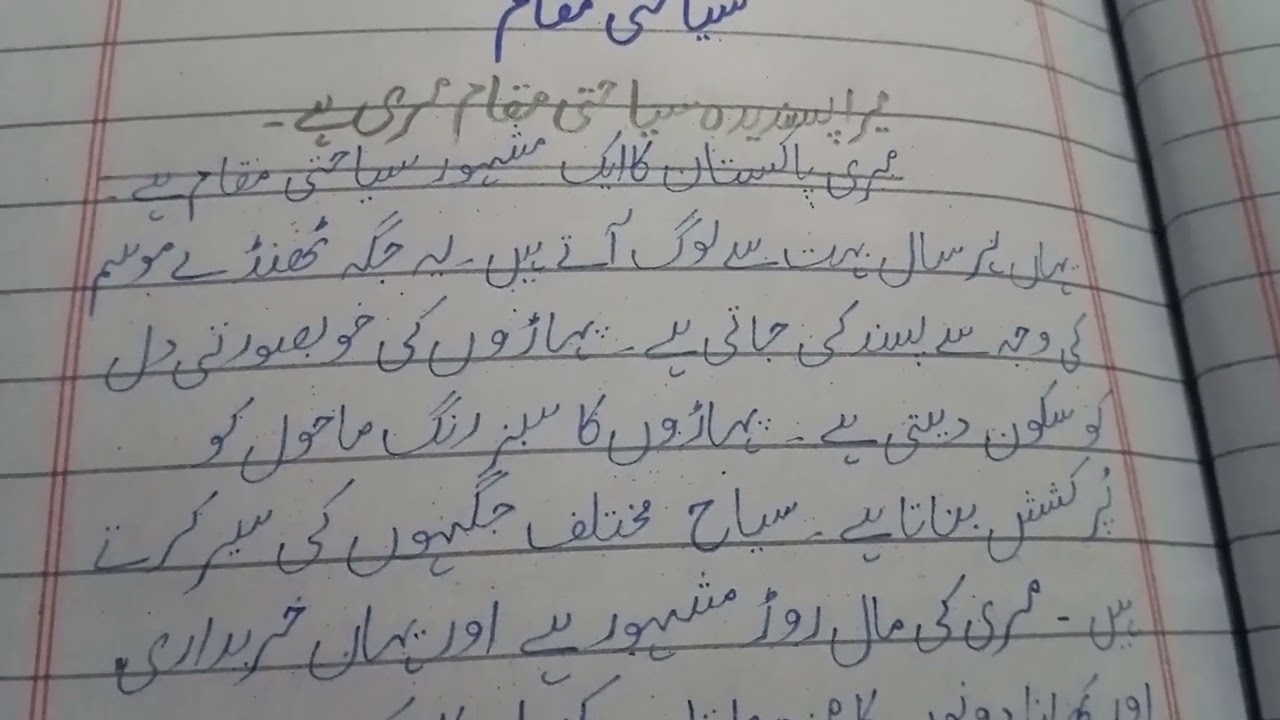 سیاحتی مقام
میرا پسندیدہ سیاحتی مقام مری ہے۔
مری پاکستان کا ایک مشہور سیاحتی مقام ہے۔
یہاں ہر سال بہت سے لوگ آتے ہیں۔ یہ جگہ ٹھنڈے موسم
کی وجہ سے پسند کی جاتی ہے۔ پہاڑوں کی خوبصورتی دل
کو سکون دیتی ہے۔ پہاڑوں کا سبز رنگ ماحول کو
پُرکشش بناتا ہے۔ سیاح مختلف جگہوں کی سیر کرتے
ہیں۔ مری کی مال روڈ مشہور ہے اور یہاں خریداری
اور کھانا دونوں